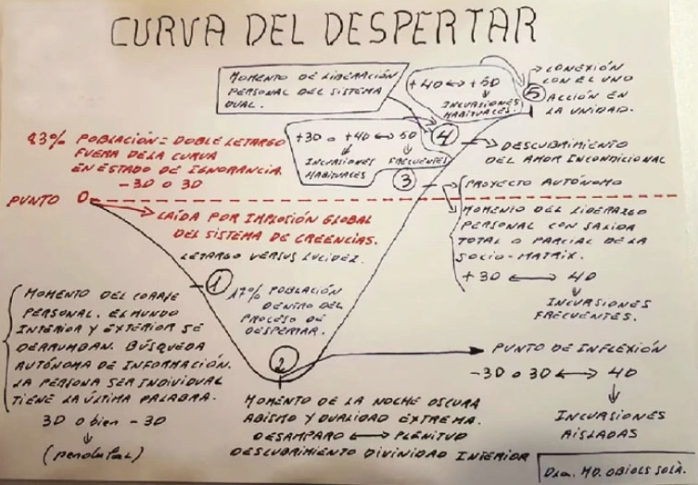 CURVA DEL DESPERTAR
MOMENTO DE LIBERACIÓN
PERSONAL DEL SISTEMA
DUAL.
+4D ↔ +5D
↓
INCURSIONES
HABITUALES.
5
→ CONEXIÓN
CON EL UNO
ACCIÓN EN
LA UNIDAD.
83% POBLACIÓN = DOBLE LETARGO
FUERA DE LA CURVA
EN ESTADO DE IGNORANCIA.
-3D O 3D
+3D o +4D ↔ 5D
INCURSIONES
HABITUALES
FRECUENTES
4
→ DESCUBRIMIENTO
DEL AMOR INCONDICIONAL
3
PROYECTO AUTÓNOMO
PUNTO 0
CAÍDA POR IMPLOSIÓN GLOBAL
DEL SISTEMA DE CREENCIAS.
LETARGO VERSUS LUCIDEZ.
MOMENTO DEL LIDERAZGO
PERSONAL CON SALIDA
TOTAL O PARCIAL DE LA
SOCIO-MATRIX.
+3D ↔ 4D
↓
INCURSIONES
FRECUENTES.
1
MOMENTO DEL CORAJE
PERSONAL. EL MUNDO
INTERIOR Y EXTERIOR SE
DERRUMBAN. BÚSQUEDA
AUTÓNOMA DE INFORMACIÓN.
LA PERSONA SER INDIVIDUAL
TIENE LA ÚLTIMA PALABRA.
3D o bien -3D
↓
17% POBLACIÓN
DENTRO DEL
PROCESO DE
DESPERTAR.
2
MOMENTO DE LA NOCHE OSCURA
ABISMO Y DUALIDAD EXTREMA.
DESAMPARO ↔ PLENITUD
DESCUBRIMIENTO DIVINIDAD INTERIOR
PUNTO DE INFLEXIÓN
-3D o 3D ↔ 4D
↓
INCURSIONES
AISLADAS
Dra. MD. OBIOLS SOLÀ.